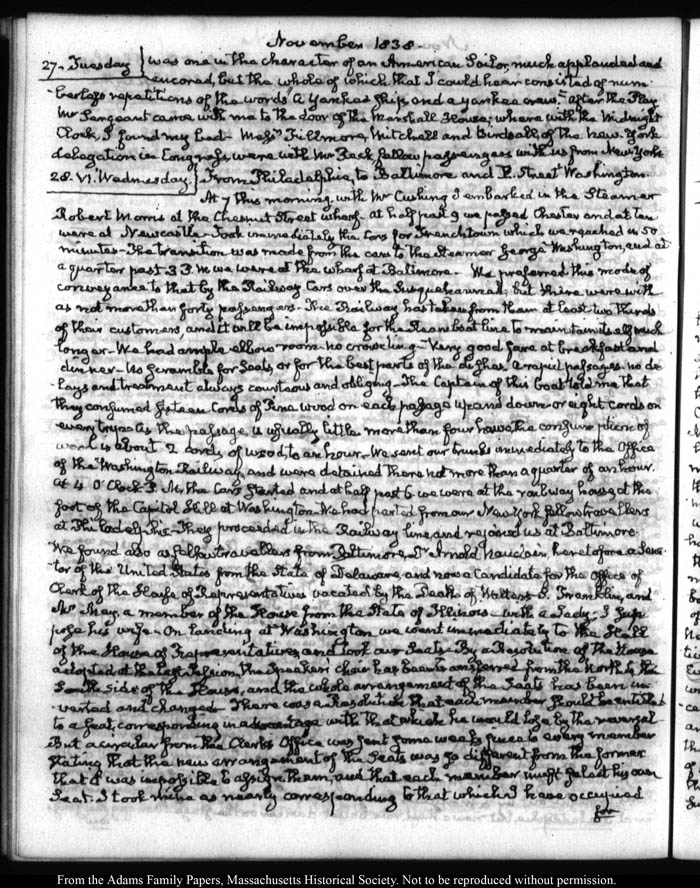 November 1838.
27. Tuesday } was one in the character of an American Sailor, much applauded and
encored, but the whole of which that I could hear consisted of num-
berless repetitions of the words "a Yankee ship and a yankee crew." After the Play
Mr Sergeant came with me to the door of the Marshall House; where with the Midnight
Clock I found my bed. Messrs Fillmore, Mitchell and Birdsall, of the New-York
delegation in Congress, were with Mr Peck fellow passengers with us from New York
28. VI. Wednesday } From Philadelphia to Baltimore and F. Street Washington.
At 7 this morning with Mr Cushing I embarked in the Steamer
Robert Morris at the Chesnut Street wharf at half past 9 we passed Chester and at ten
were at Newcastle. Took immediately the Cars for Frenchtown which we reached in 50
minutes. The transition was made from the cars to the Steamer George Washington, and at
a quarter past 3 P.M we were at the wharf at Baltimore. We preferred this mode of
conveyance to that by the Railway Cars over the Susquehannah, but there were with
us not more than forty passengers. The Railway has taken from them at least two thirds
of their customers, and it will be impossible for the Steam boat line to maintain itself much
longer. We had ample elbow-room no crowding. Very good fare at breakfast and
dinner. No scramble for Seats, or for the best parts of the dishes. A rapid passage. no de-
lays and treatment always courteous and obliging. The Captain of this boat told me that
they consumed fifteen Cords of Pine wood on each passage up and down or eight cords on
every trip. As the passage is usually little more than four hours the
wood is about 2 cords of wood, to an hour. We sent our trunks immediately to the Office
of the Washington Railway, and were detained there not more than a quarter of an hour.
At 4. O'Clock P. M. the Cars started and at half past 6 we were at the railway house at the
foot of the Capitol Hill at Washington. We had parted from our New York fellow travellers
at Philadelphia. They proceeded in the Railway line, and rejoined us at Baltimore.
We found also as fellow travellers from Baltimore, Dr Arnold Naudain, heretofore a Sena-
tor of the United States from the State of Delaware, and now a Candidate for the Office of
Clerk of the House of Representatives vacated by the Death of Walter S. Franklin, and
Mr May, a member of the House from the State of Illinois. with a Lady. I sup-
pose his wife. On landing at Washington we went immediately to the Hall
of the House of Representatives, and took our Seats. By a Resolution of the House
adopted at the last Session, the Speaker's chair has been transferred from the North to the
South side of the House, and the whole arrangement of the Seats has been in-
verted and changed. There was a Resolution that each member should be entitled
to a seat, corresponding in advantage with that which he would lose by the reversal.
But a circular from the Clerk's Office was sent some weeks since to every member
stating that the new arrangement of the Seats was so different from the former
that it was impossible to assign them, and that each member must select his own
Seat. I took mine as nearly corresponding to that which I have occupied
for
From the Adams Family Papers, Massachusetts Historical Society. Not to be reproduced without permission.